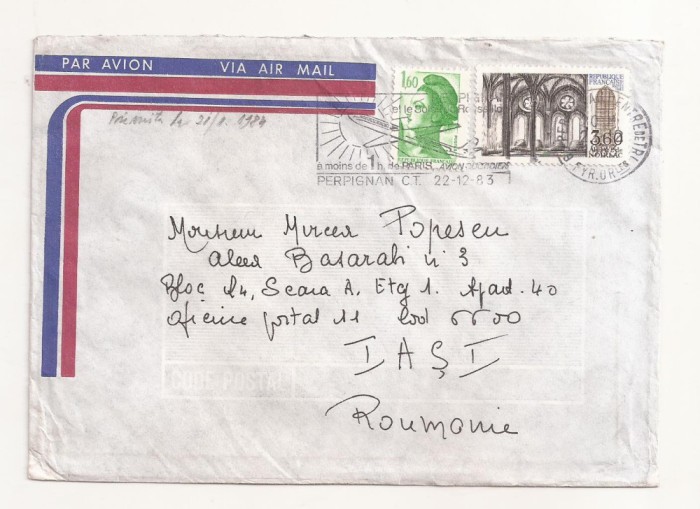 PAR AVION VIA AIR MAIL
1,60
REPUBLIQUE FRANÇAISE
3,60
à moins de 1 h. de PARIS,
PERPIGNAN C.T. 22-12-83
21/1. 1984
Monsieur Mircea Popescu
Aleea Basarabi n° 3
Bloc I4, Scara A, Etg 1. Apart. 40
oficiul postal 11 cod 6600
IAŞI
CODE POSTAL
Roumanie